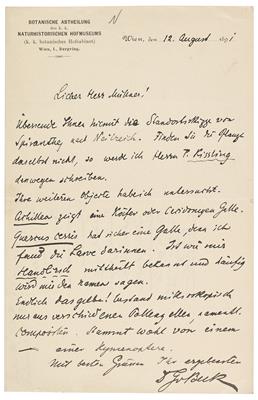 N
BOTANISCHE ABTHEILUNG
des k. k.
NATURHISTORISCHEN HOFMUSEUMS
(k. k. botanisches Hofkabinet)
Wien, I., Burgring.
Wien, den 12. August 1891
Lieber Herr
Übersende Ihnen hiemit die Standortsskizze von
Spiranthes nach Neilreich. Finden Sie die Pflanze
daselbst nicht, so werde ich Herrn P. Kissling
deswegen schreiben.
Ihre weiteren Objecte habe ich untersucht.
Achillea zeigt eine Käfer oder Cecidomyen Galle.
Quercus cerris hat sicher eine Galle, denn ich
fand die Larve darinnen. Ist wie mir
Handlirsch mittheilt bekannt und häufig
wird mir den Namen sagen.
Endlich das gelbe! bestand mikroskopisch
nur aus verschiedenen Pollenzellen, namentl.
Compositen. Stammt wohl von einem
einer Hymenoptere.
Mit besten Grüssen Ihr ergebenster
Dr G v Beck